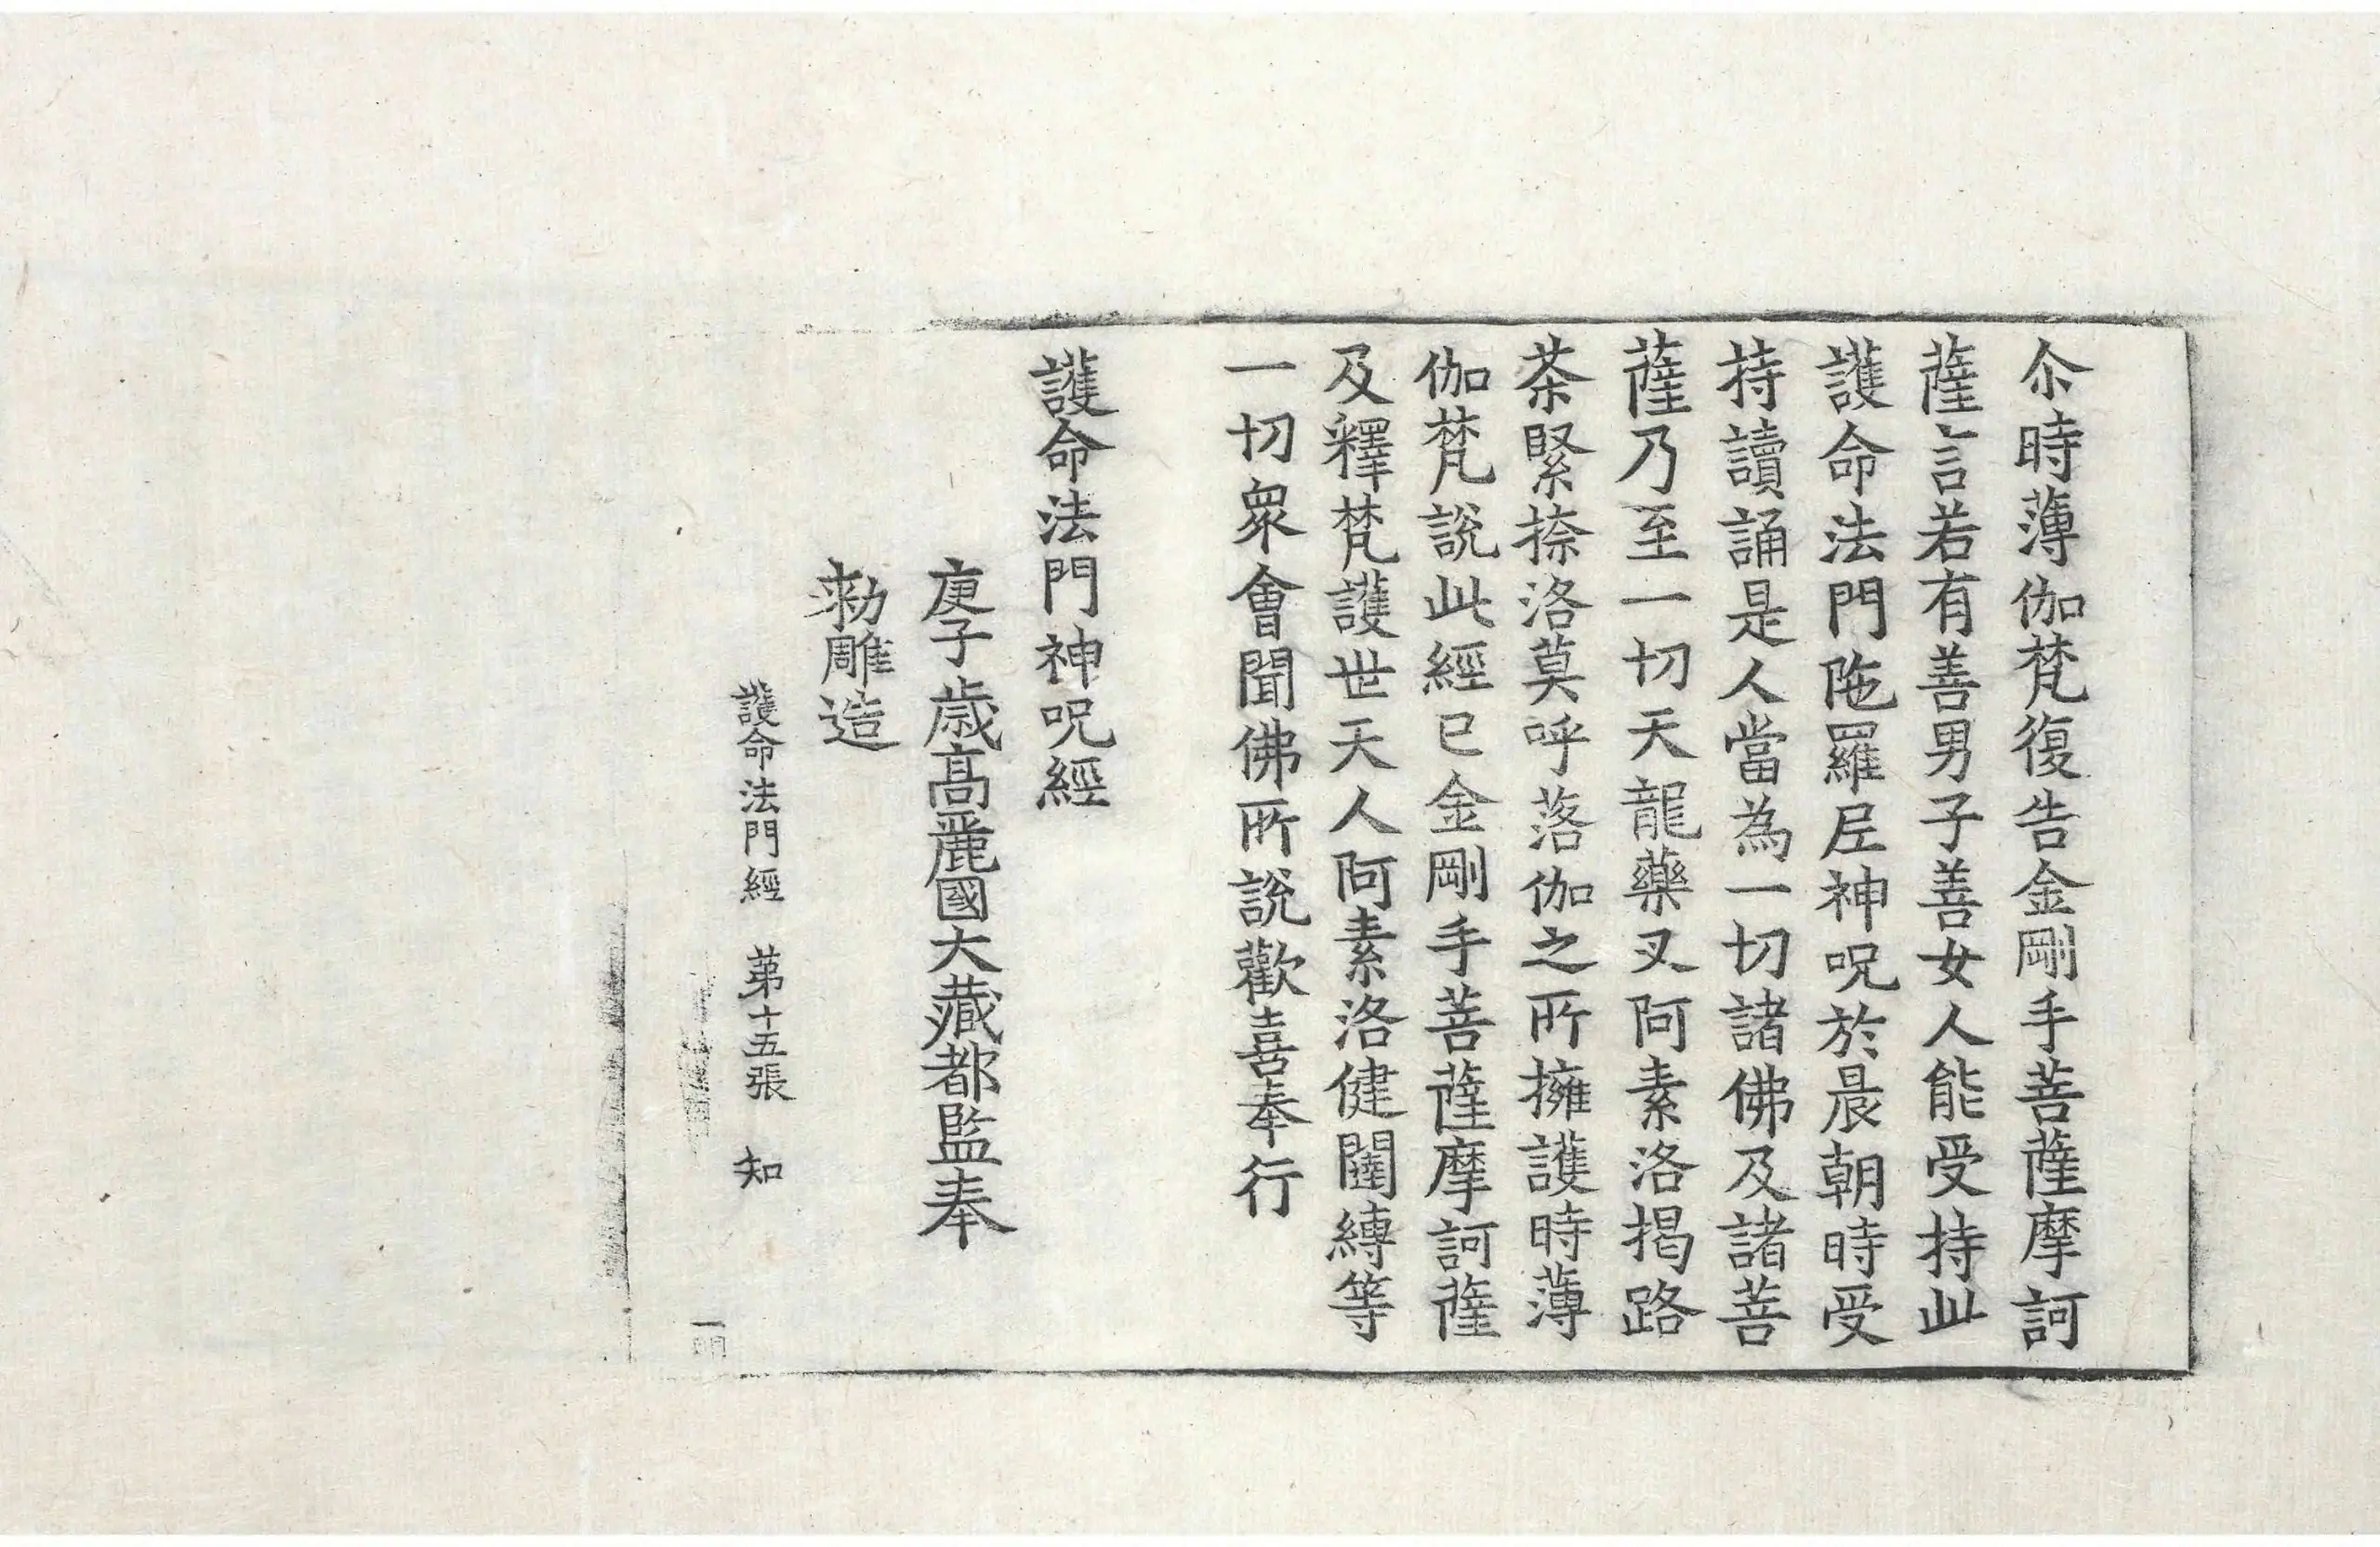 尒時薄伽梵復告金剛手菩薩摩訶
薩言若有善男子善女人能受持此
護命法門陁羅尼神呪於晨朝時受
持讀誦是人當為一切諸佛及諸菩
薩乃至一切天龍藥叉阿素洛揭路
茶緊捺洛莫呼落伽之所擁護時薄
伽梵說此經已金剛手菩薩摩訶薩
及釋梵護世天人阿素洛健闥縛等
一切衆會聞佛所說歡喜奉行
護命法門神呪經
庚子歲高麗國大藏都監奉
勑雕造
護命法門經 第十五張 知